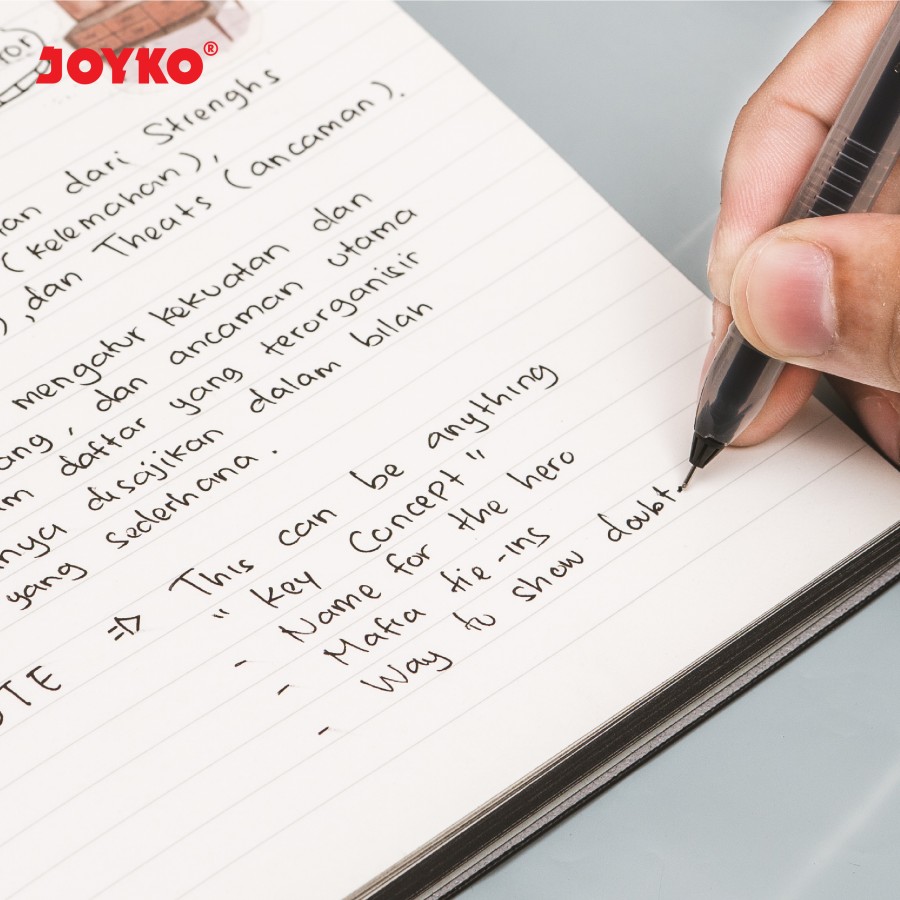 JOYKO®
dari Strenghs
(kelemahan),
, dan Theats (ancaman).
mengatur kekuatan dan
, dan ancaman utama
daftar yang terorganisir
disajikan dalam bilah
yang sederhana.
=> This can be anything
" Key Concept "
- Name for the hero
- Mafia tie-ins
- Way to show doubt